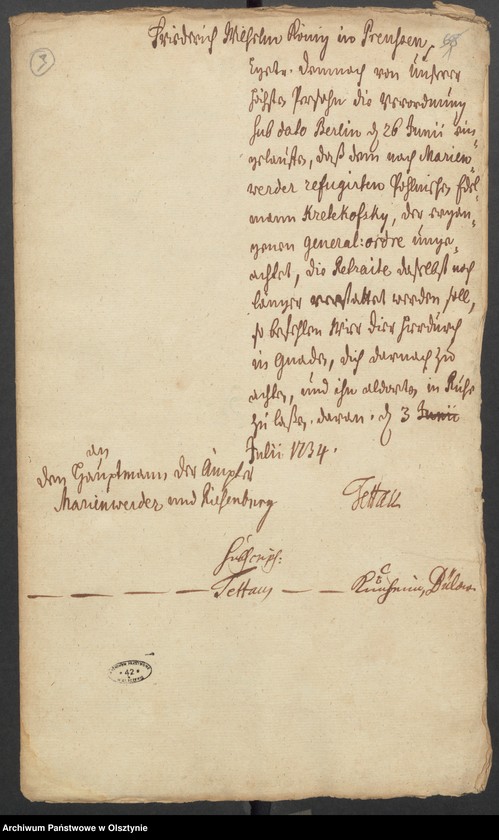 3
Friederich Wilhelm König in Preußen,
Demnach von Unserer
höchsten Persohn die Verordnung
sub dato Berlin d 26 Junii ein-
gelauffen, daß dem nach Marien-
werder refugirten Pohlnischen Edel-
mann Kretekofsky, der ergan-
genen General-ordre unge-
achtet, die Retraite daselbst noch
länger verstattet werden soll,
so befehlen Wir dier hierdurch
in Gnaden, dich darnach zu
achten, und ihn aldorten in Ruhe
zu laßen. daran. d 3 Junii
Julii 1734.
an
den Hauptmann der Ämpter
Marienwerder und Riesenburg
Tettau
Subscrips:
Tettau Bülow
42
Archiwum Państwowe w Olsztynie